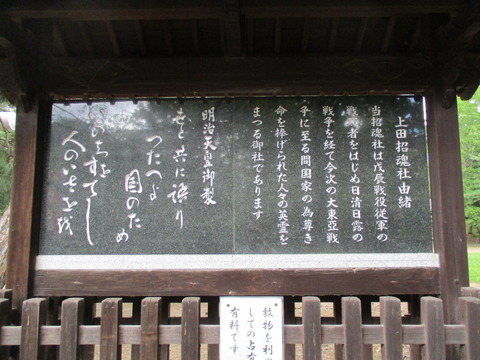 上田招魂社由緒
当招魂社は戊辰戦役従軍の
戦死者をはじめ日清日露の
戦争を経て今次の大東亞戦
争に至る間国家の為尊き
命を捧げられた人々の英霊を
まつる御社であります
明治天皇御製
世と共に語り
つたへよ
国のため
命をすてし
人のいさをを
敷物を利
しての占有
有料です